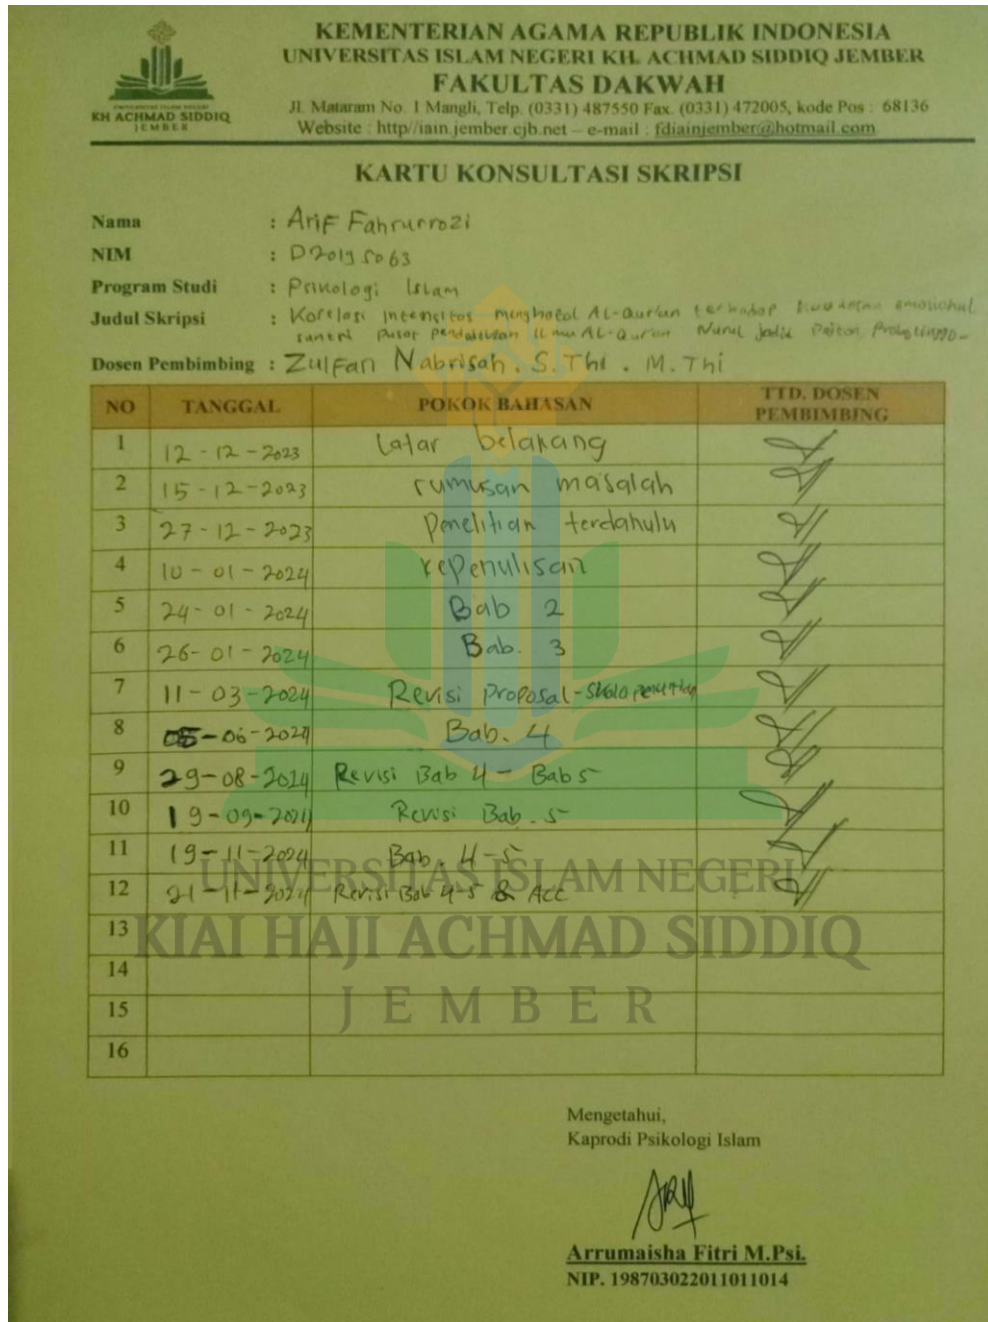 KEMENTERIAN AGAMA REPUBLIK INDONESIA
UNIVERSITAS ISLAM NEGERI KH. ACHMAD SIDDIQ JEMBER
FAKULTAS DAKWAH
Jl. Mataram No. 1 Mangli, Telp. (0331) 487550 Fax. (0331) 472005, kode Pos : 68136
Website : http//iain.jember.cjb.net – e-mail : fdiainjember@hotmail.com
UNIVERSITAS ISLAM NEGERI
KH ACHMAD SIDDIQ
JEMBER
KARTU KONSULTASI SKRIPSI
Nama : Arif Fahrurrozi
NIM : D20195063
Program Studi : Psikologi Islam
Judul Skripsi : Korelasi intensitas menghafal AL-Qur'an terhadap emosional
santri pusat pendidikan ilmu AL-Qur'an Nurul Jadid Paiton Probolinggo
Dosen Pembimbing : Zulfan Nabrisah. S.Thi. M.Thi
NO TANGGAL POKOK BAHASAN TTD. DOSEN PEMBIMBING
1 12-12-2023 Latar belakang
2 15-12-2023 rumusan masalah
3 27-12-2023 penelitian terdahulu
4 10-01-2024 kepenulisan
5 24-01-2024 Bab 2
6 26-01-2024 Bab. 3
7 11-03-2024 Revisi proposal-skala penelitian
8 05-06-2024 Bab. 4
9 29-08-2024 Revisi Bab 4 - Bab 5
10 19-09-2024 Revisi Bab. 5
11 19-11-2024 Bab. 4-5
12 21-11-2024 Revisi Bab 4-5 & Acc
13
14
15
16
UNIVERSITAS ISLAM NEGERI
KIAI HAJI ACHMAD SIDDIQ
JEMBER
Mengetahui,
Kaprodi Psikologi Islam
Arrumaisha Fitri M.Psi.
NIP. 198703022011011014